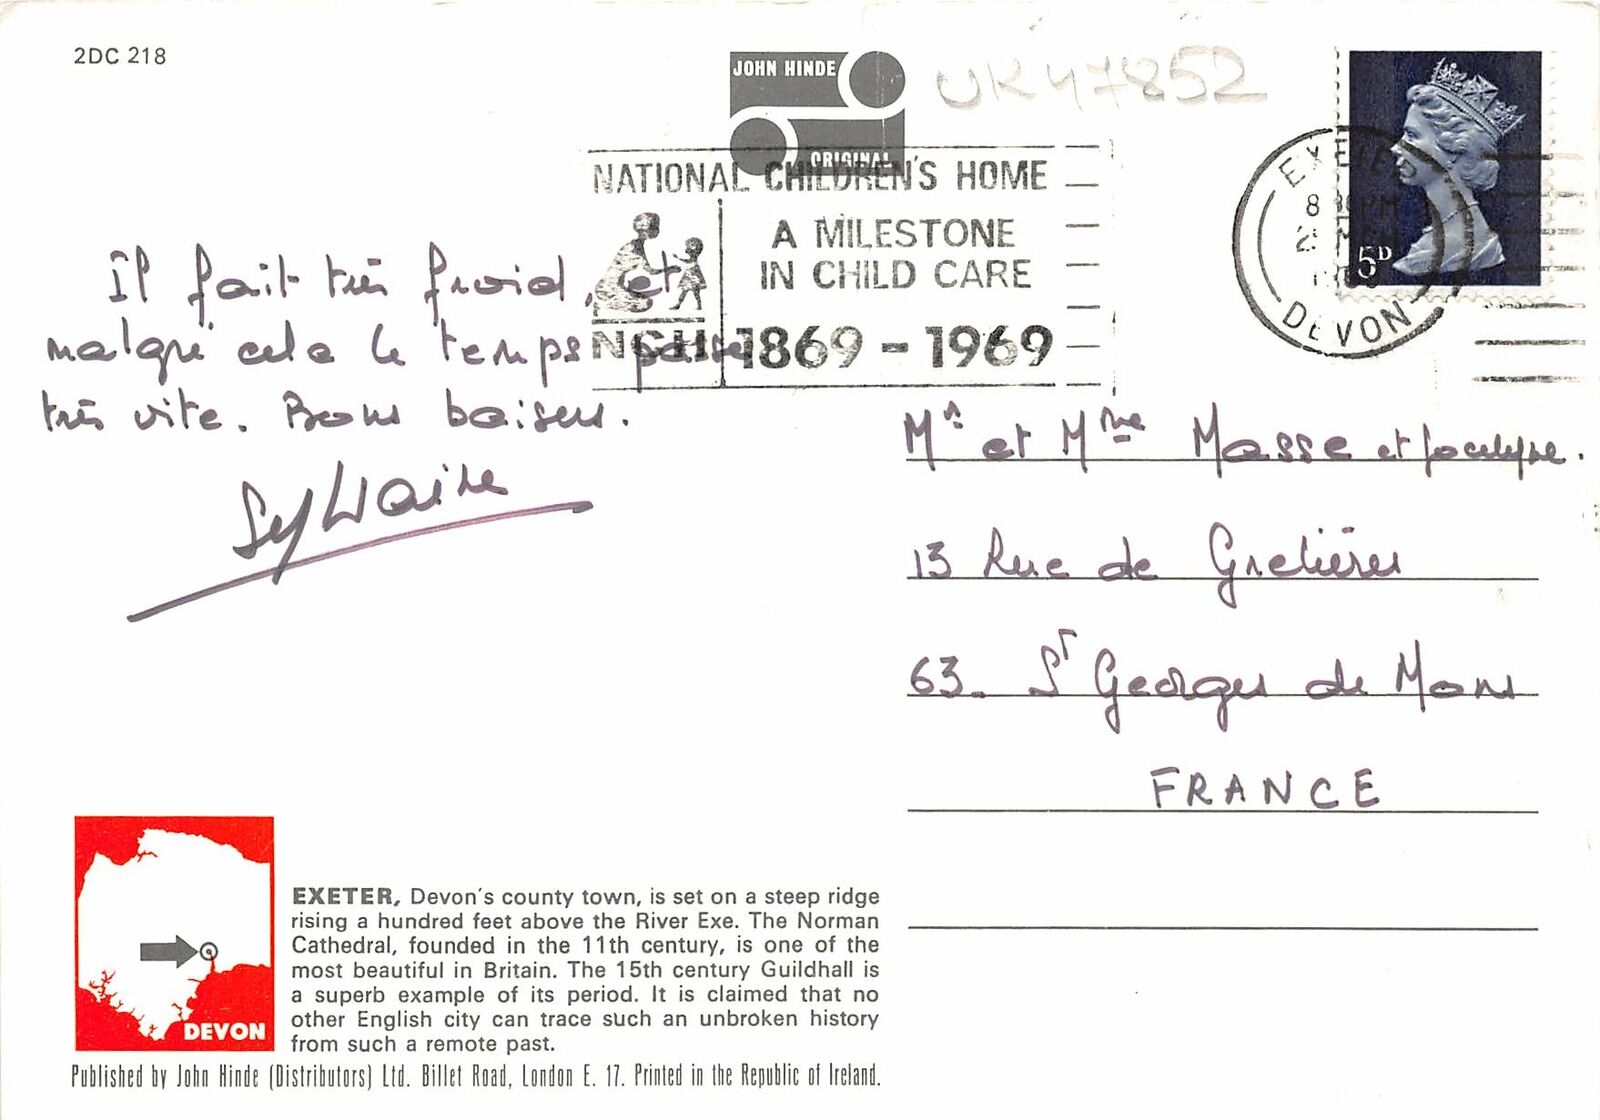 2DC 218
JOHN HINDE
ORIGINAL
UK47852
NATIONAL CHILDREN'S HOME
A MILESTONE
IN CHILD CARE
NCH 1869 - 1969
EXETER
DEVON
5D
Il fait très froid, et
malgré cela le temps passe
très vite. Bons baisers.
Sylvaine
Mr et Mme Masse et Jocelyne.
13 Rue de Grelières
63. St Georges de Mons
FRANCE
DEVON
EXETER, Devon's county town, is set on a steep ridge
rising a hundred feet above the River Exe. The Norman
Cathedral, founded in the 11th century, is one of the
most beautiful in Britain. The 15th century Guildhall is
a superb example of its period. It is claimed that no
other English city can trace such an unbroken history
from such a remote past.
Published by John Hinde (Distributors) Ltd. Billet Road, London E. 17. Printed in the Republic of Ireland.